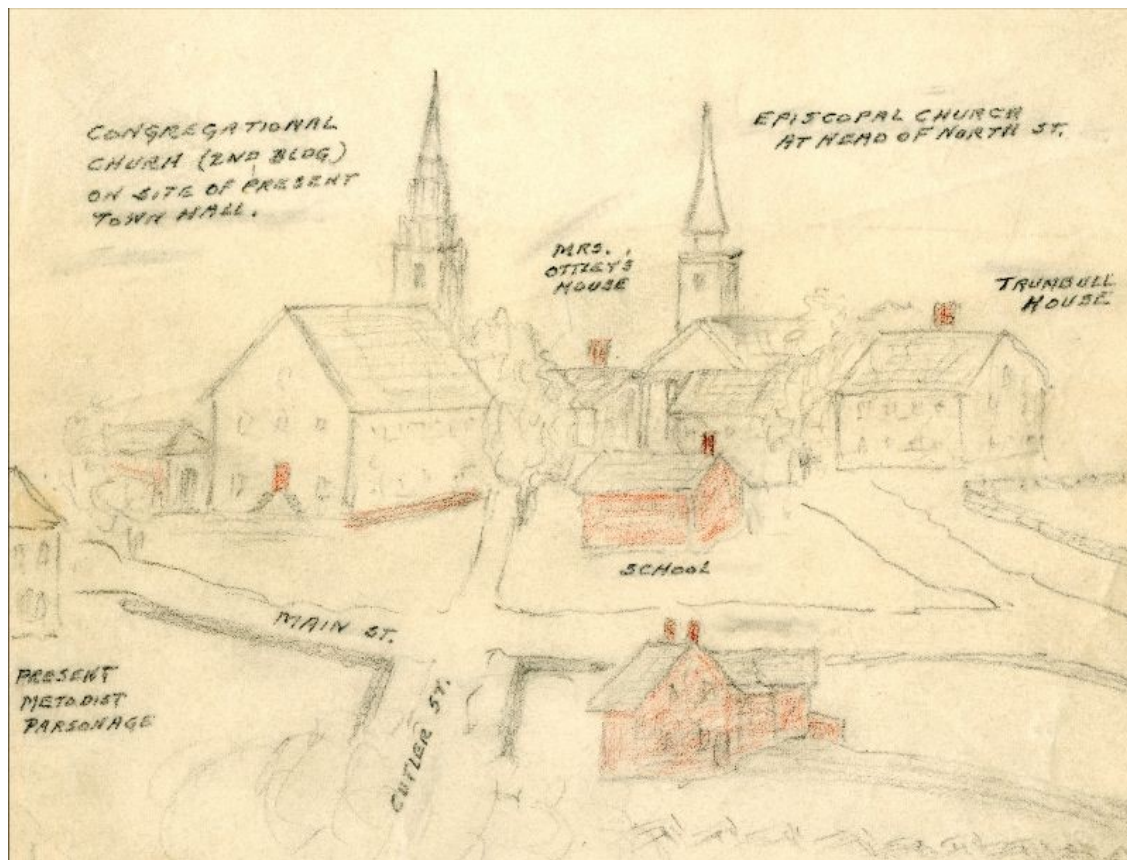 CONGREGATIONAL
CHURH (2ND BLDG)
ON SITE OF PRESENT
TOWN HALL.
EPISCOPAL CHURCH
AT HEAD OF NORTH ST.
MRS.
OTTLEY'S
HOUSE
TRUMBULL
HOUSE
SCHOOL
MAIN ST.
PRESENT
METODIST
PARSONAGE
CUTLER ST.